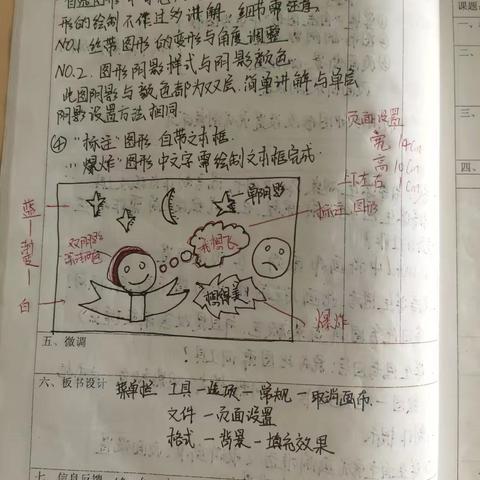 形的绘制不做过多讲解,细节需注意
NO.1 丝带图形的变形与角度调整
NO.2. 图形阴影样式与阴影颜色
此图阴影与颜色都为双层,简单讲解与单层
阴影设置方法相同.
④ "标注"图形 自带文本框
"爆炸"图形中文字需绘制文本框完成.
页面设置
宽 14cm
高 10cm
上下左右 1cm
蓝
渐变
白
单阴影
双阴影
我想飞
标注图形
想得美!
爆炸
五、微调
六、板书设计
菜单栏 工具—选项—常规—取消画布.
文件—页面设置
格式—背景—填充效果
七、信息反馈
课题
一、
二、
三、
四、